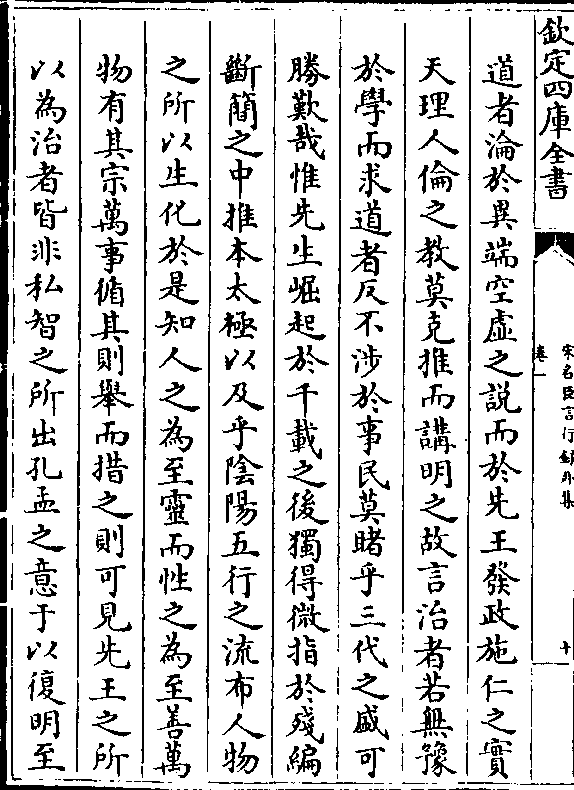 欽定四庫全書
宋名臣言行錄外集
卷一
十
道者淪於異端空虛之說而於先王發政施仁之實
天理人倫之教莫克推而講明之故言治者若無豫
於學而求道者反不涉於事民莫睹乎三代之盛可
勝歎哉惟先生崛起於千載之後獨得微指於殘編
斷簡之中推本太極以及乎陰陽五行之流布人物
之所以生化於是知人之為至靈而性之為至善萬
物有其宗萬事循其則舉而措之則可見先王之所
以為治者皆非私智之所出孔孟之意于以復明至